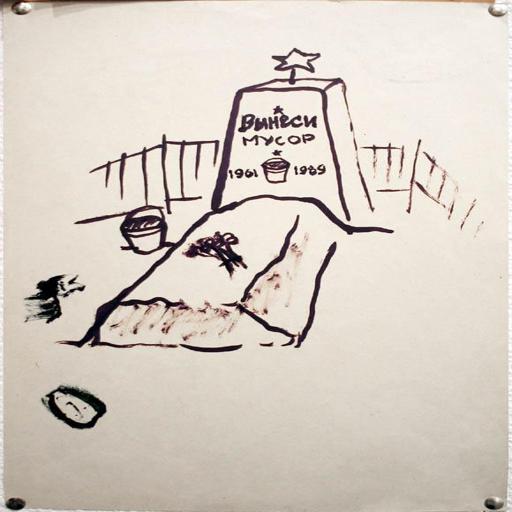 Вынеси
мусор
1961 1989